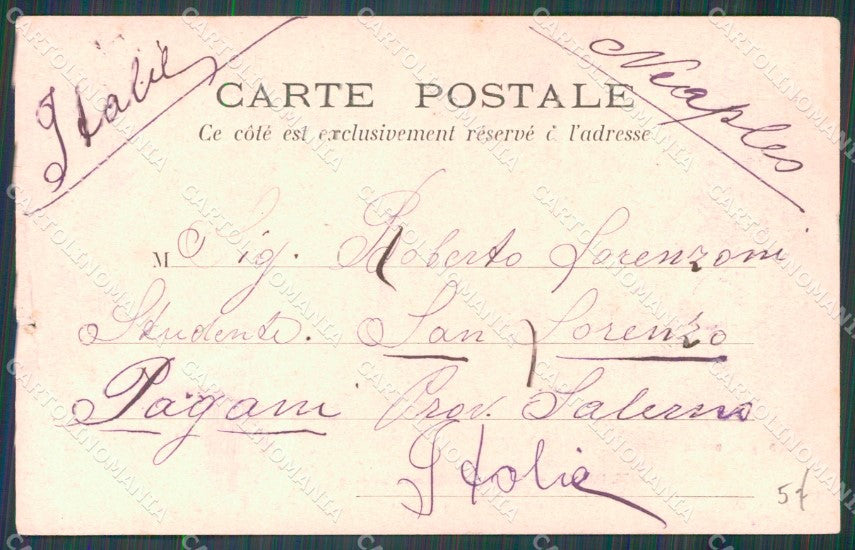 Italie
Neaples
CARTE POSTALE
Ce côté est exclusivement réservé à l'adresse
M Sig. Roberto Lorenzoni
Studente. San Lorenzo
Pagani Prov. Salerno
Italie
CARTOLINOMANIA